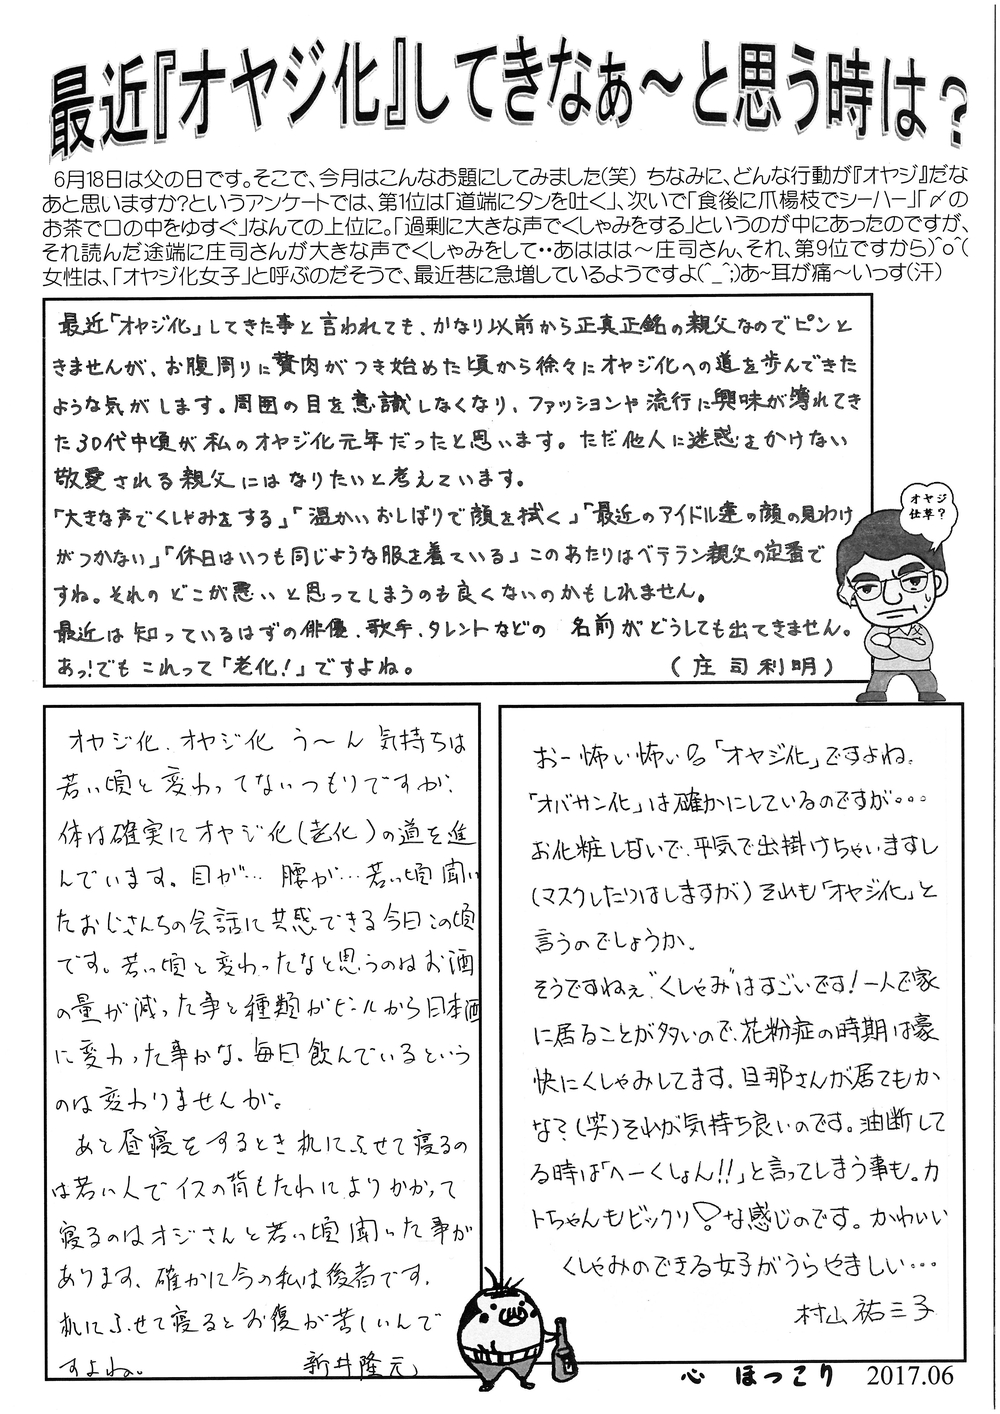 最近『オヤジ化』してきなぁ～と思う時は？
6月18日は父の日です。そこで、今月はこんなお題にしてみました(笑) ちなみに、どんな行動が『オヤジ』だな
あと思いますか?というアンケートでは、第1位は「道端にタンを吐く」、次いで「食後に爪楊枝でシーハー」「〆の
お茶で口の中をゆすぐ」なんての上位に。「過剰に大きな声でくしゃみをする」というのが中にあったのですが、
それ読んだ途端に庄司さんが大きな声でくしゃみをして・・あははは～庄司さん、それ、第9位ですから)^o^(
女性は、「オヤジ化女子」と呼ぶのだそうで、最近巷に急増しているようですよ(^_^;)あ~耳が痛～いっす(汗)
最近「オヤジ化」してきた事と言われても、かなり以前から正真正銘の親父なのでピンと
きませんが、お腹周りに贅肉がつき始めた頃から徐々にオヤジ化への道を歩んできた
ような気がします。周囲の目を意識しなくなり、ファッションや流行に興味が薄れてき
た30代中頃が私のオヤジ化元年だったと思います。ただ他人に迷惑をかけない
敬愛される親父にはなりたいと考えています。
「大きな声でくしゃみをする」「温かいおしぼりで顔を拭く」「最近のアイドル達の顔の見わけ
がつかない」「休日はいつも同じような服を着ている」このあたりはベテラン親父の定番で
すね。それのどこが悪いと思ってしまうのも良くないのかもしれません。
最近は知っているはずの俳優、歌手、タレントなどの 名前がどうしても出てきません。
あっ!でもこれって「老化!」ですよね。 (庄司利明)
オヤジ
仕草?
オヤジ化、オヤジ化 う～ん 気持ちは
若い頃と変わってないつもりですが、
体は確実にオヤジ化(老化)の道を進
んでいます。目が… 腰が…若い頃聞い
たおじさんちの会話に共感できる今日この頃
です。若い頃と変わったなと思うのはお酒
の量が減った事と種類がビールから日本酒
に変わった事かな。毎日飲んでいるという
のは変わりませんが。
あと昼寝をするとき机にふせて寝るの
は若い人でイスの背もたれによりかかって
寝るのはオジさんと若い頃聞いた事が
あります、確かに今の私は後者です。
机にふせて寝るとお腹が苦しいんで
すよね。 新井隆元
おー怖い怖い「オヤジ化」ですよね。
「オバサン化」は確かにしているのですが・・・
お化粧しないで、平気で出掛けちゃいますし
(マスクしたりはしますが)それも「オヤジ化」と
言うのでしょうか、
そうですねぇ"くしゃみ"はすごいです!一人で家
に居ることが多いので、花粉症の時期は豪
快にくしゃみしてます。旦那さんが居てもか
な?(笑)それが気持ち良いのです。油断して
る時は「へーくしょん!!」と言ってしまう事も。カ
トちゃんもビックリ!な感じのです。かわいい
くしゃみのできる女子がうらやましい・・・
村山祐三子
心 ほっこり 2017.06